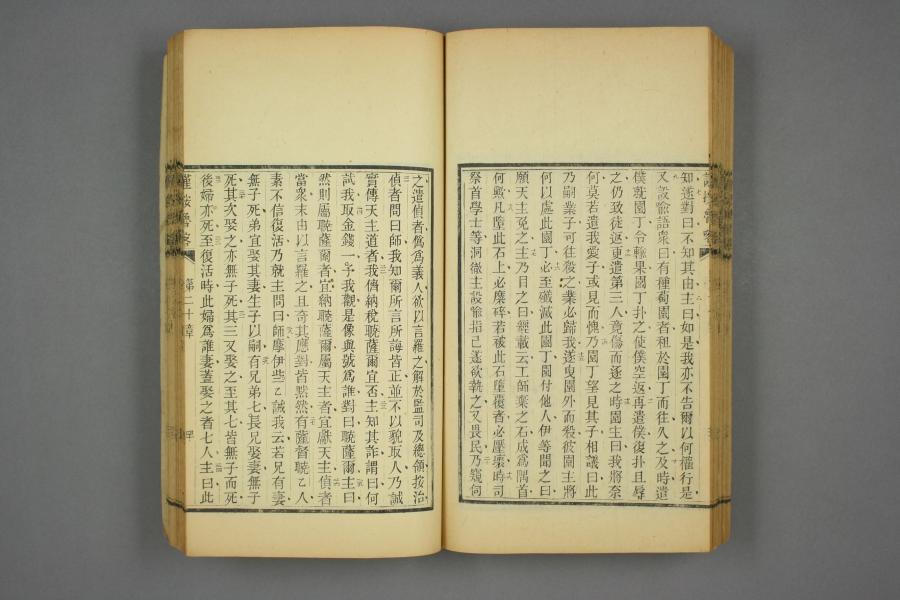 知遂對曰不知其由主曰如是我亦不告爾以何權行是
又設喻語衆曰有種萄園者租於園丁而往久之及時遣
僕就園丁令輸果園丁扑之使僕空返再遣僕復扑且辱
之仍致徒返更遣第三人竟傷而逐之時園主曰我將奈
何莫若遣我愛子或見而愧乃園丁望見其子相議曰此
乃嗣業子可往殺之業必歸我遂曳園外而殺彼園主將
何以處此園丁必至殲滅此園丁園付他人伊等聞之曰
願天主免之主乃目之曰經載云工師棄之石成爲隅首
何與凡墮此石上必糜碎若被此石墮覆者必壓壞時司
祭首學士等洞徹主設喻指己遂欲執之又畏民乃窺伺
之遣偵者僞爲義人欲以言羅之解於監司及總領按治
偵者問曰師我知爾所言所誨皆正並不以貌取人乃誠
實傳天主道者我儕納稅聡薩爾宜否主知其詐謂曰何
試我取金錢一予我觀是像與號爲誰對曰聡薩爾主曰
然則屬聡薩爾者宜納聡薩爾屬天主者宜獻天主偵者
當衆末由以言羅之且奇其應對皆默然有薩督聡乙人
素不信復活乃就主問曰師摩伊些乙誡我云若兄有妻
無子死弟宜娶其妻生子以嗣有兄弟七長兄娶妻無子
死其次娶之亦無子死其三又娶之至其七皆無子而死
後婦亦死至復活時此婦爲誰妻蓋娶之者七人主曰此
第二十章